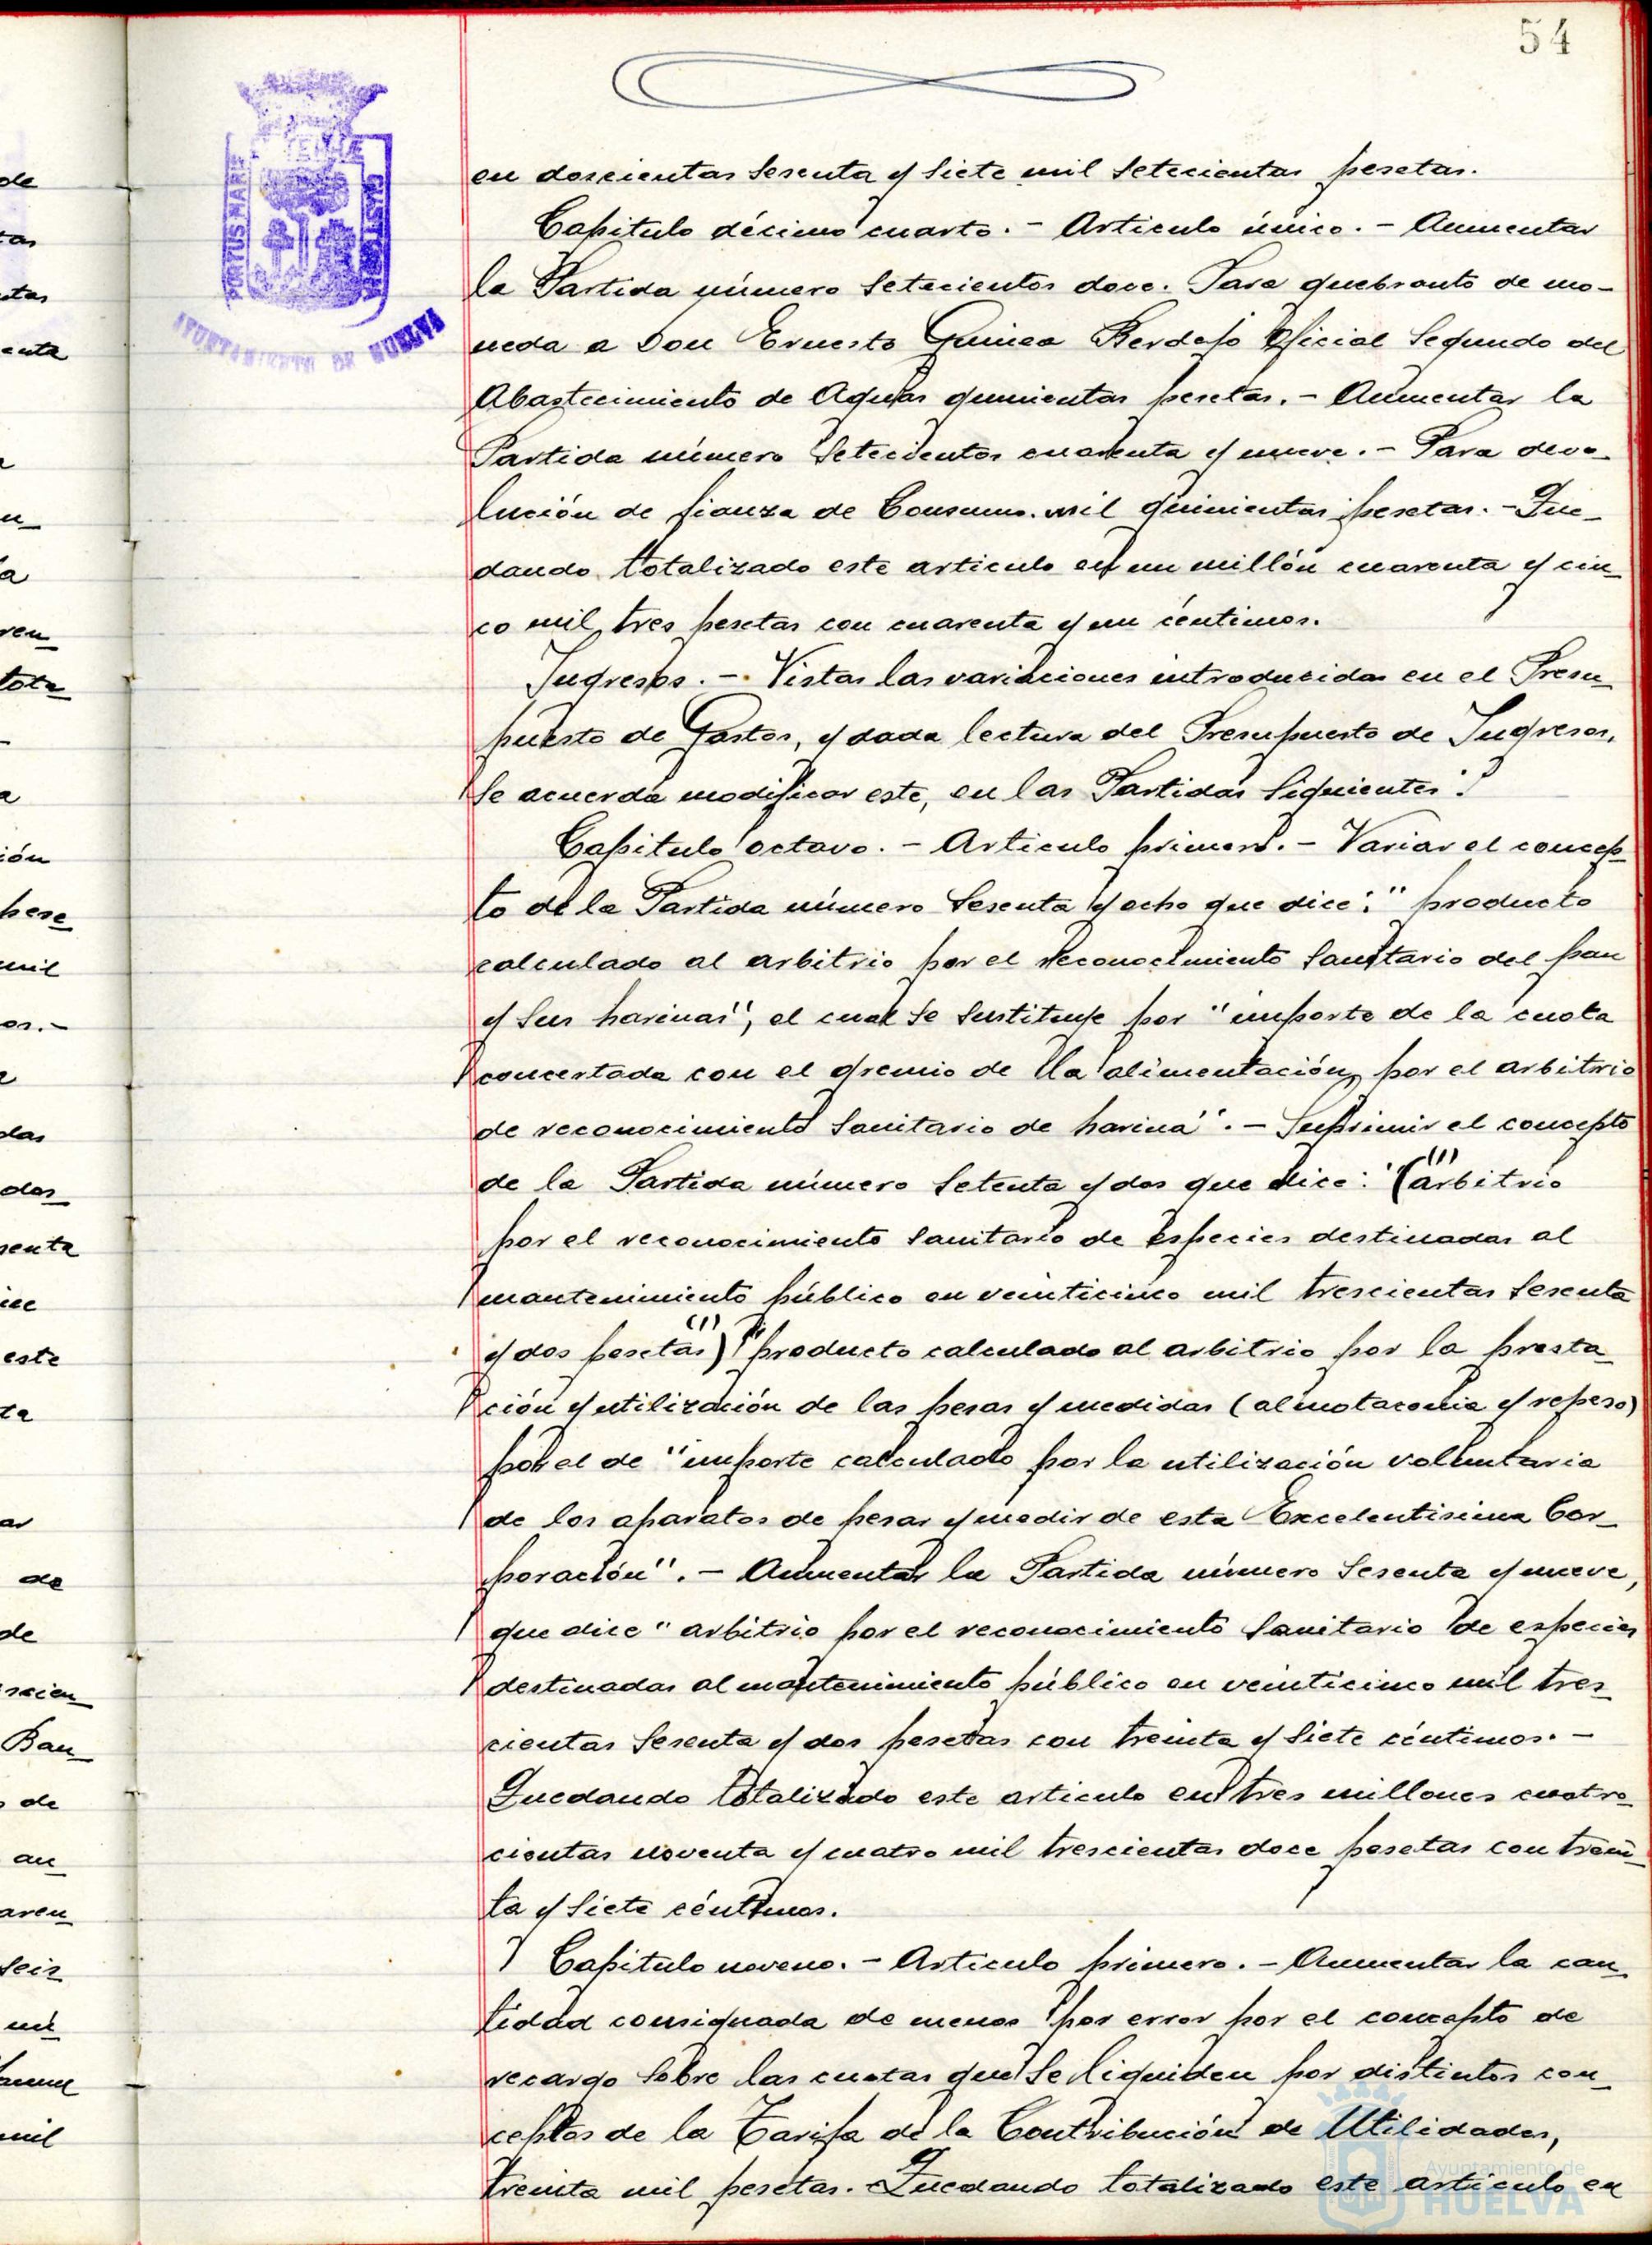 54
PORTUS MARIS
ET TERRAE
CUSTODIA
AYUNTAMIENTO DE HUELVA
en doscientas sesenta y siete mil setecientas pesetas.
Capitulo décimo cuarto. - Articulo único. - Aumentar
la Partida número setecientos doce. Para quebranto de mo-
neda a Don Ernesto Guinea Berdejo Oficial Segundo del
Abastecimiento de Aguas quinientas pesetas. - Aumentar la
Partida número setecientos cuarenta y nueve. - Para devo-
lución de fianza de Consumo. mil quinientas pesetas. - Que-
dando totalizado este articulo en un millón cuarenta y cin-
co mil tres pesetas con cuarenta y un céntimos.
Ingresos. - Vistas las variaciones introducidas en el Presu-
puesto de Gastos, y dada lectura del Presupuesto de Ingresos,
se acuerda modificar este, en las Partidas siguientes:
Capitulo octavo. - Articulo primero. - Variar el concep-
to de la Partida número sesenta y ocho que dice: " producto
calculado al arbitrio por el reconocimiento sanitario del pan
y sus harinas", el cual se sustituye por "importe de la cuota
concertada con el gremio de la alimentación por el arbitrio
de reconocimiento sanitario de harina". - Suprimir el concepto
de la Partida número setenta y dos que dice: "(arbitrio (1)
por el reconocimiento sanitario de especies destinadas al
mantenimiento público en veinticinco mil trescientas sesenta
y dos pesetas) (1) "producto calculado al arbitrio por la presta-
ción y utilización de las pesas y medidas (almotacenia y repeso)
por el de "importe calculado por la utilización voluntaria
de los aparatos de pesar y medir de esta Excelentisima Cor-
poración". - Aumentar la Partida número sesenta y nueve,
que dice " arbitrio por el reconocimiento sanitario de especies
destinadas al mantenimiento público en veinticinco mil tres-
cientas sesenta y dos pesetas con treinta y siete céntimos. -
Quedando totalizado este articulo en tres millones cuatro-
cientas noventa y cuatro mil trescientas doce pesetas con trein-
ta y siete céntimos.
Capitulo noveno. - Articulo primero. - Aumentar la can-
tidad consignada de menos por error por el concepto de
recargo sobre las cuotas que se liquiden por distintos con-
ceptos de la Tarifa de la Contribución de Utilidades,
treinta mil pesetas. Quedando totalizado este articulo en
Ayuntamiento de
HUELVA